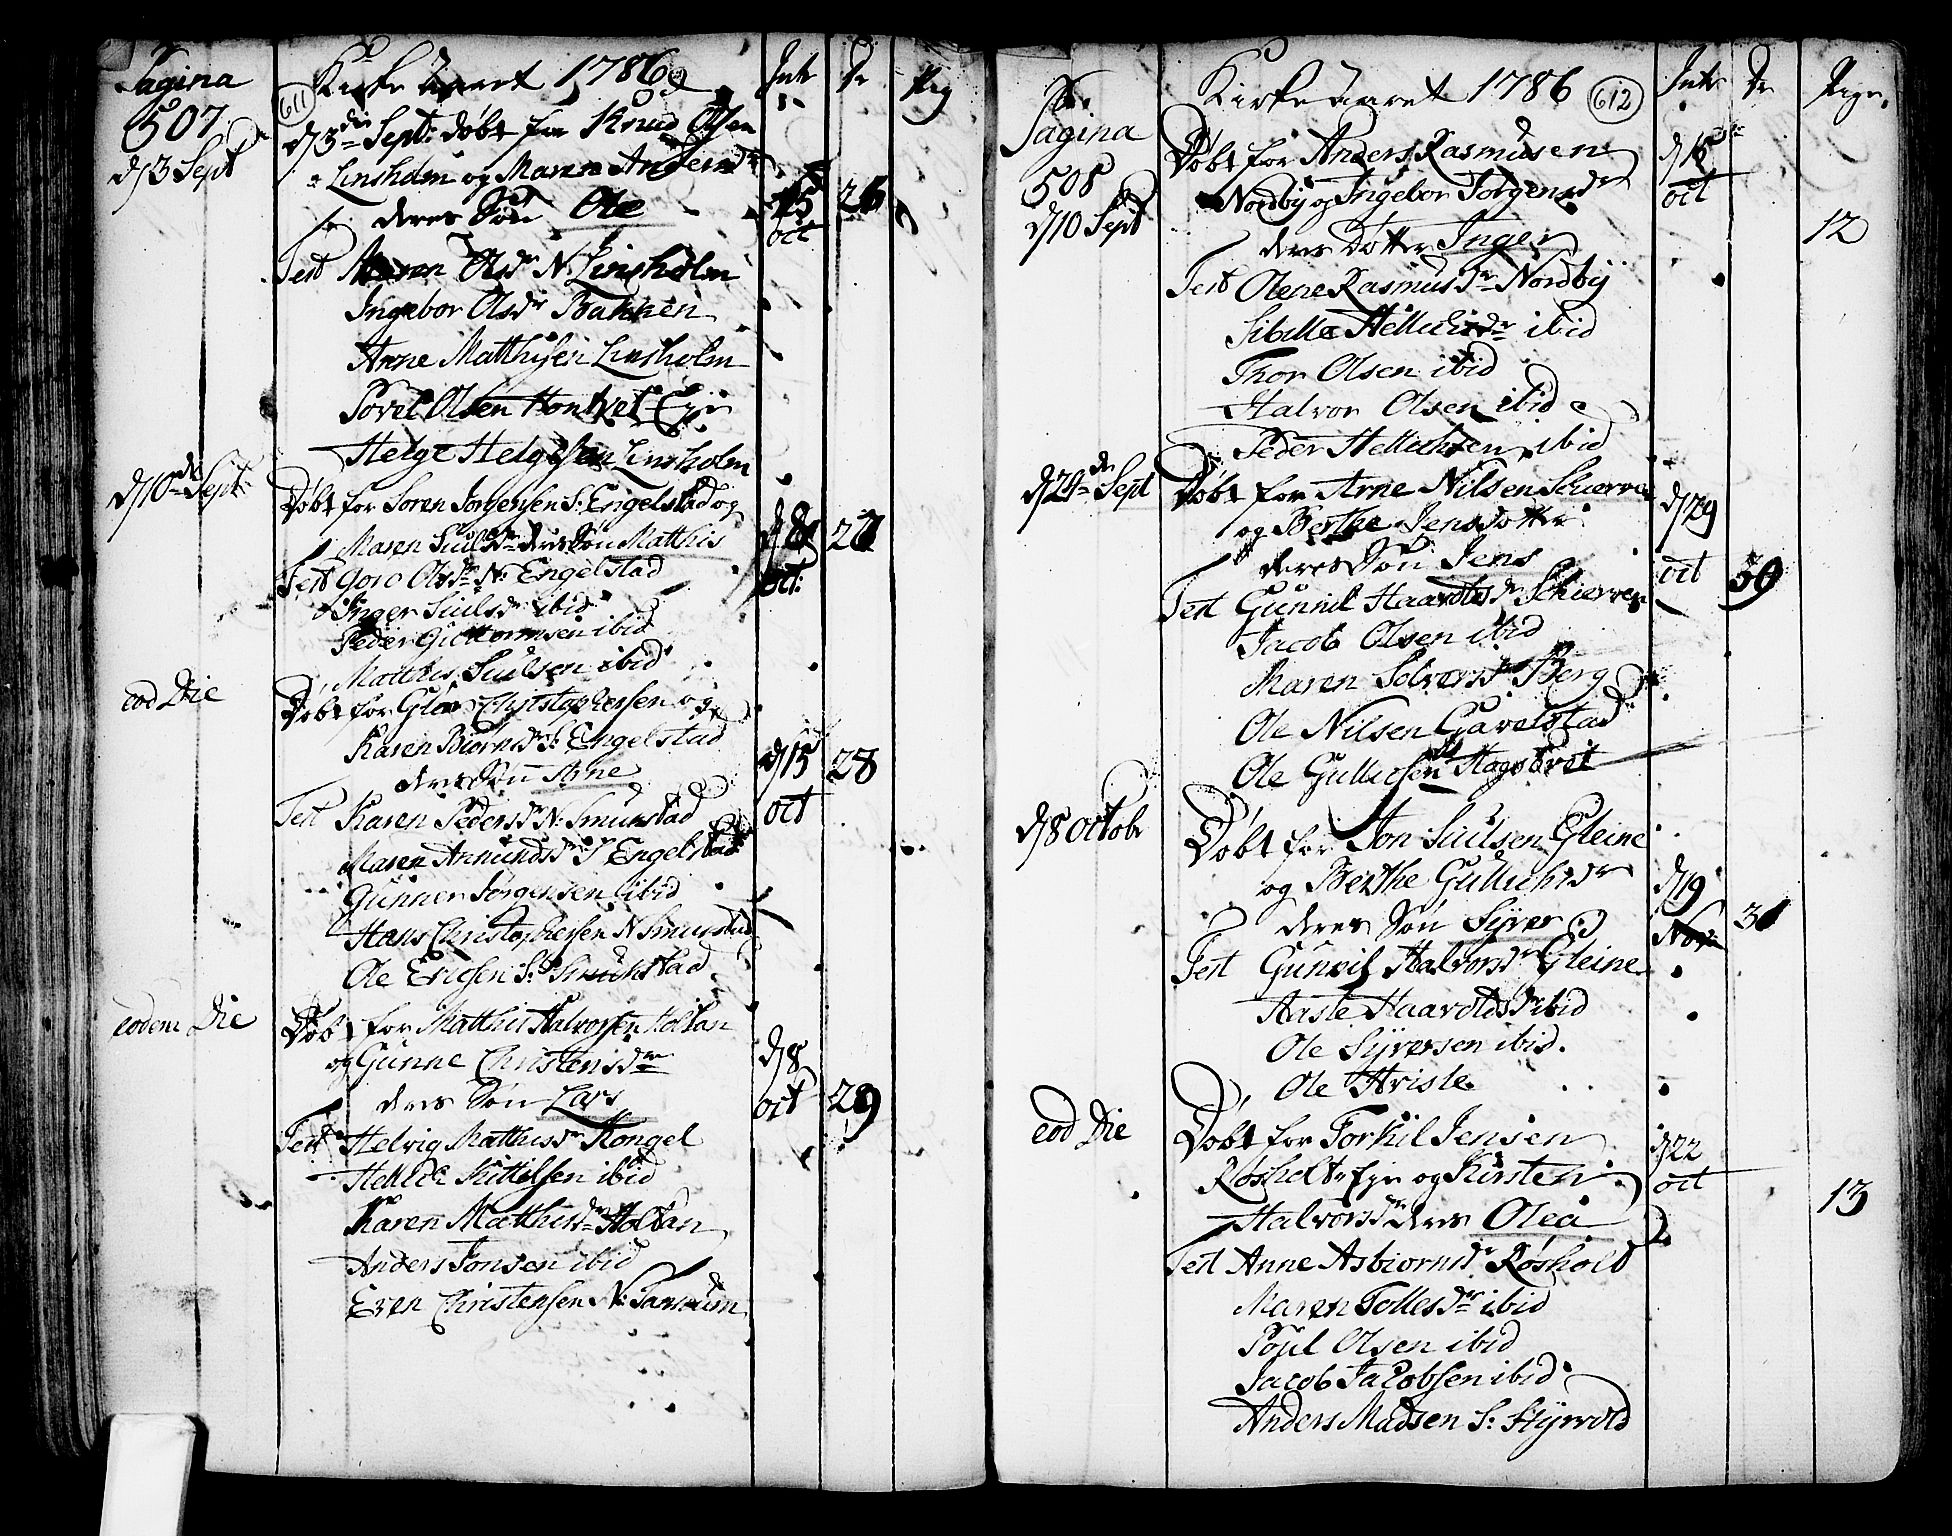 Pagina
507
Kirke Aaret 1786
611
Intr
Dr
Pig
d 3 Sept
d 3die Sept: døbt for Knud Olsen
Linsholm og Maren Andersdr
deres Søn Ole
15
oct
26
Test Maren Olsdr N. Linsholm
Ingebor Olsdr Bakken
Arne Matthisen Linsholm
Povel Olsen Hontvet Eje
Helge Helgesen Linsholm
d 10de Sept:
Døbt for Soren Jørgensen S: Engelstad og
Maren Siulsdr deres Søn Matthis
oct:
27
Test Goro Olsdr N: Engelstad
Inger Siulsdr ibid
Peder Guttormsen ibid
Matthis Siulsen ibid
eod Die
Døbt for Gloer Christophersen og
Karen Biørnsdr S: Engelstad
deres Søn Arne
d 15
oct
28
Test Karen Pedersdr N: Smukstad
Maren Amundsdr S Engelstad
Gunner Jørgensen ibid
Hans Christophersen N Smukstad
Ole Ericsen S: Smukstad
eodem Die
Døbt for Matthis Halvorsen Holtan
og Gunne Christensdr
deres Søn Lars
d 8
oct
29
Test Helvig Matthisdr Kongel
Kittilsen ibid
Karen Matthisdr Holtan
Anders Jonsen ibid
Even Christensen N: Sankum
Pagina
508
Kirke aaret 1786
612
Intr
Dr
Pige
d 10 Sept
Døbt for Anders Rasmusen
Nordby og Ingebor Jørgensdr
deres Dotter Inger
d 15
oct
12
Test Olene Rasmusdr Nordbÿ
Sibille Hellichsdr ibid
Thor Olsen ibid
Halvor Olsen ibid
Peder Hellichsen ibid
d 24de Sept
Døbt for Arne Nilsen Schierven
og Berthe Jensdotter
deres Søn Jens
d 29
oct
30
Test Gunnil Haavoldsdr Schierven
Jacob Olsen ibid
Maren Solversdr Berg
Ole Nilsen Gavelstad
Ole Gullichsen Hogstvet
d 8 Octobr
Døbt for Jon Siulsen Gleine
og Berthe Gullichsdr
deres Søn Syver
d 19
Nov
31
Test Gunvil Halvorsdr Gleine
Aaste Haavoldsdr ibid
Ole Syversen ibid.
Ole Hvisle
eod Die
Døbt for Torkil Jensen
Røsholt Eje og Kirsten
Halvorsdr deres Olea
d 22
oct
13
Test Anne Asbiornsdr Røsholt
Maren Tollesdr ibid
Poul Olsen ibid
Jacob Jacobsen ibid
Anders Madsen S: Styrvold